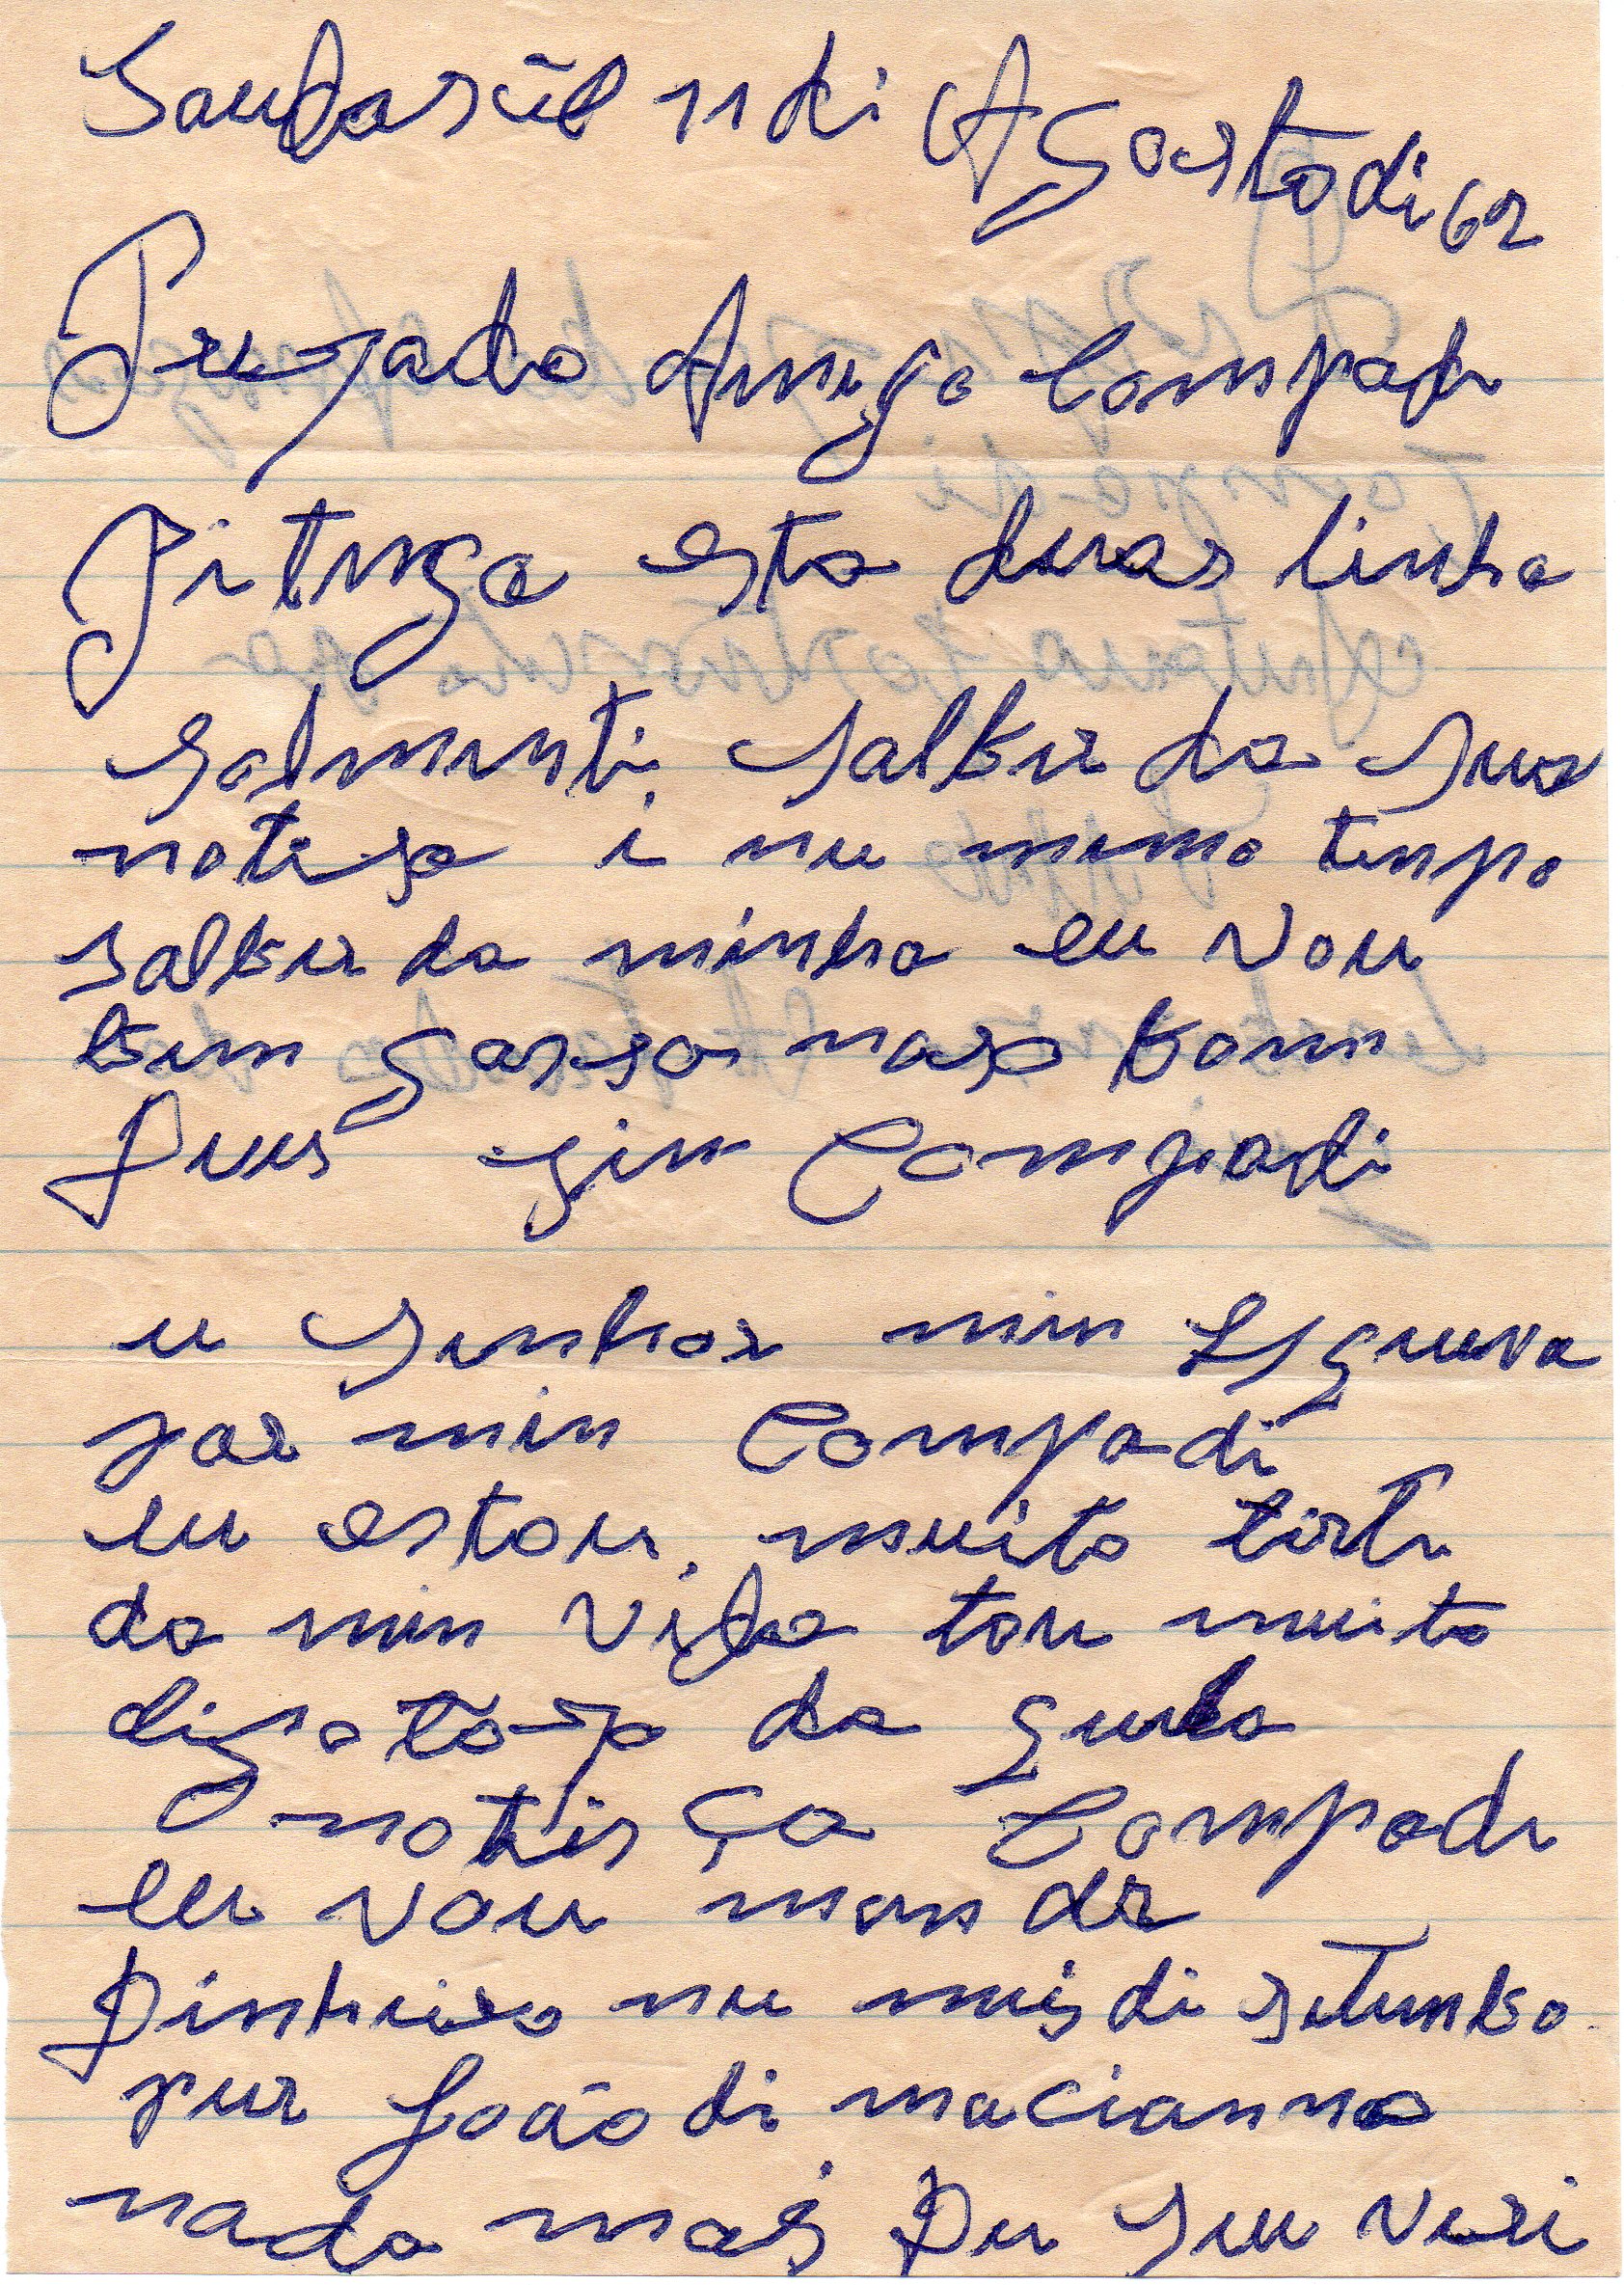 Saudasũl 11 di Agosto di 62
Prezado Amigo Compadi
Pitnga esta duas linha
Solmenti salber da sua
notisa i nu memo tempo
salber da minha eu vou
bem grasa nasa bom
Deus sim Compadi
u Senhor min esqueva
por min Compadi
eu estou muito tirti
da min vida tou muito
da guela
notisça Compadi
eu vou mandr
Dinheiro nu meis di setembo
pur João di macianno
nada mais Du seu veri